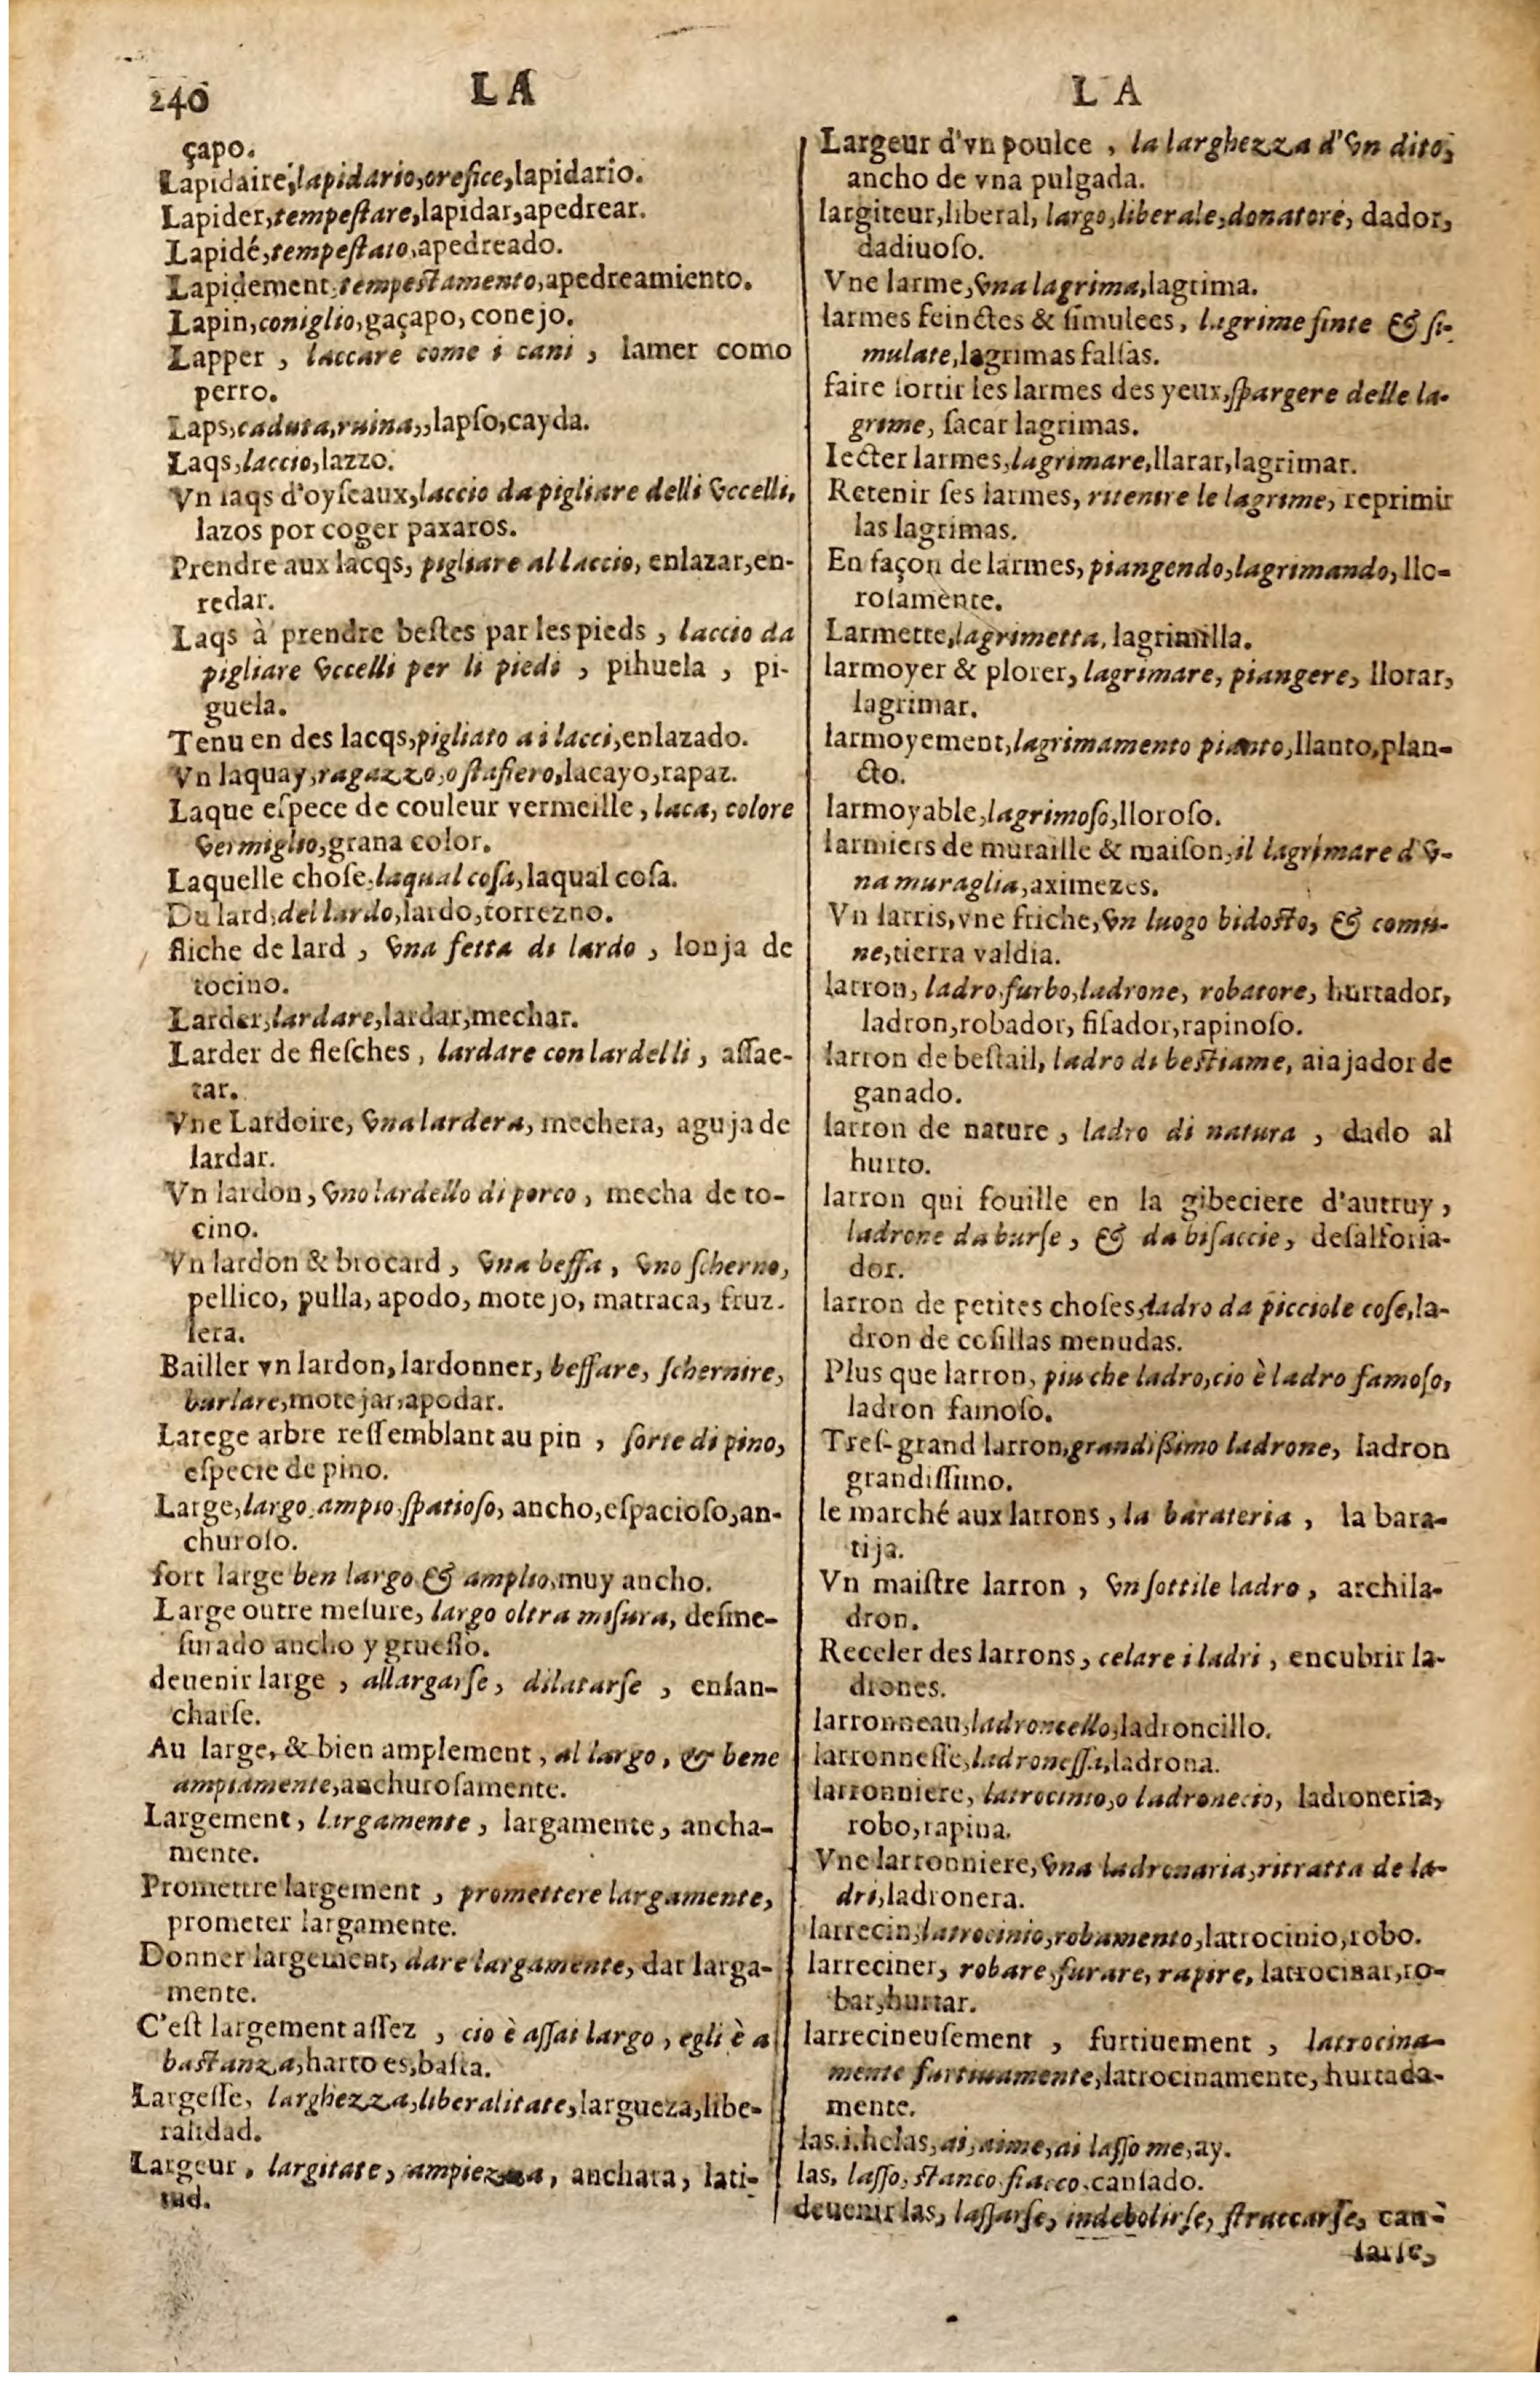 240
LA
LA
çapo.
Lapidaire,lapidario,orefice,lapidario.
Lapider,tempeſtare,lapidar,apedrear.
Lapidé,tempeſtato,apedreado.
Lapidement,tempeſtamento,apedreamiento.
Lapin,coniglio,gaçapo,conejo.
Lapper , laccare come i cani , lamer como
perro.
Laps,caduta,ruina,,lapſo,cayda.
Laqs,laccio,lazzo.
Vn laqs d'oyſeaux,laccio da pigliare delli vccelli,
lazos por coger paxaros.
Prendre aux lacqs, pigliare al laccio, enlazar,en-
redar.
Laqs à prendre beſtes par les pieds , laccio da
pigliare vccelli per li piedi , pihuela , pi-
guela.
Tenu en des lacqs,pigliato a i lacci,enlazado.
Vn laquay,ragazzo,o ſtafiero,lacayo,rapaz.
Laque eſpece de couleur vermeille , laca, colore
vermiglio,grana color.
Laquelle choſe,laqual coſa,laqual coſa.
Du lard,del lardo,lardo,torrezno.
fliche de lard , vna fetta di lardo , lonja de
tocino.
Larder,lardare,lardar,mechar.
Larder de fleſches , lardare con lardelli , aſſae-
tar.
Vne Lardoire, vna lardera, mechera, aguja de
lardar.
Vn lardon, vno lardello di porco , mecha de to-
cino.
Vn lardon & brocard , vna beffa , vno ſcherno,
pellico, pulla, apodo, motejo, matraca, fruz-
lera.
Bailler vn lardon, lardonner, beffare, ſchernire,
burlare,motejar,apodar.
Larege arbre reſſemblant au pin , ſorte di pino,
eſpecie de pino.
Large,largo,ampio,ſpatioſo, ancho,eſpacioſo,an-
churoſo.
fort large ben largo & amplio,muy ancho.
Large outre meſure, largo oltra miſura, deſme-
ſurado ancho y grueſſo.
deuenir large , allargarſe, dilatarſe , enſan-
charſe.
Au large, & bien amplement , al largo, & bene
ampiamente,anchuroſamente.
Largement, largamente , largamente , ancha-
mente.
Promettre largement , promettere largamente,
prometer largamente.
Donner largement, dare largamente, dar larga-
mente.
C'eſt largement aſſez , cio è aſſai largo , egli è a
baſtanza,harto es,baſta.
Largeſſe, larghezza,liberalitate,largueza,libe-
ralidad.
Largeur , largitate, ampiezza, anchara, lati-
tud.
Largeur d'vn poulce , la larghezza d'vn dito,
ancho de vna pulgada.
largiteur,liberal, largo,liberale,donatore, dador,
dadiuoſo.
Vne larme,vna lagrima,lagrima.
larmes feinctes & ſimulees, lagrime finte & ſi-
mulate,lagrimas falſas.
faire ſortir les larmes des yeux,ſpargere delle la-
grime, ſacar lagrimas.
Iecter larmes,lagrimare,llarar,lagrimar.
Retenir ſes larmes, ritenire le lagrime, reprimir
las lagrimas.
En façon de larmes, piangendo,lagrimando, llo-
roſamente.
Larmette,lagrimetta, lagrimilla.
larmoyer & plorer, lagrimare, piangere, llorar,
lagrimar.
larmoyement,lagrimamento pianto,llanto,plan-
cto.
larmoyable,lagrimoſo,lloroſo.
larmiers de muraille & maiſon,il lagrimare d'v-
na muraglia,aximezes.
Vn larris,vne friche,vn luogo bidoſto, & comu-
ne,tierra valdia.
larron, ladro,furbo,ladrone, robatore, hurtador,
ladron,robador, fiſador,rapinoſo.
larron de beſtail, ladro di beſtiame, aiajador de
ganado.
larron de nature , ladro di natura , dado al
hurto.
larron qui fouille en la gibeciere d'autruy ,
ladrone da burſe , & da biſaccie, deſalforia-
dor.
larron de petites choſes,ladro da picciole coſe,la-
dron de coſillas menudas.
Plus que larron, piu che ladro,cio è ladro famoſo,
ladron famoſo.
Treſ-grand larron,grandißimo ladrone, ladron
grandiſſimo.
le marché aux larrons , la barateria , la bara-
tija.
Vn maiſtre larron , vn ſottile ladro , archila-
dron.
Receler des larrons, celare i ladri , encubrir la-
drones.
larronneau,ladroncello,ladroncillo.
larronneſſe,ladroneſſa,ladrona.
larronniere, latrocinio,o ladronecio, ladroneria,
robo,rapina.
Vne larronniere,vna ladronaria,ritratta de la-
dri,ladronera.
larrecin,latrocinio,robamento,latrocinio,robo.
larreciner, robare,furare, rapire, latrocinar,ro-
bar,hurtar.
larrecineuſement , furtiuement , latrocina-
mente furtiuamente,latrocinamente, hurtada-
mente.
las.i.helas,ai,aime,ai laſſo me,ay.
las, laſſo,ſtanco,fiacco,canſado.
deuenir las, laſſarſe, indebolirſe, ſtraccarſe, can-
ſarſe,